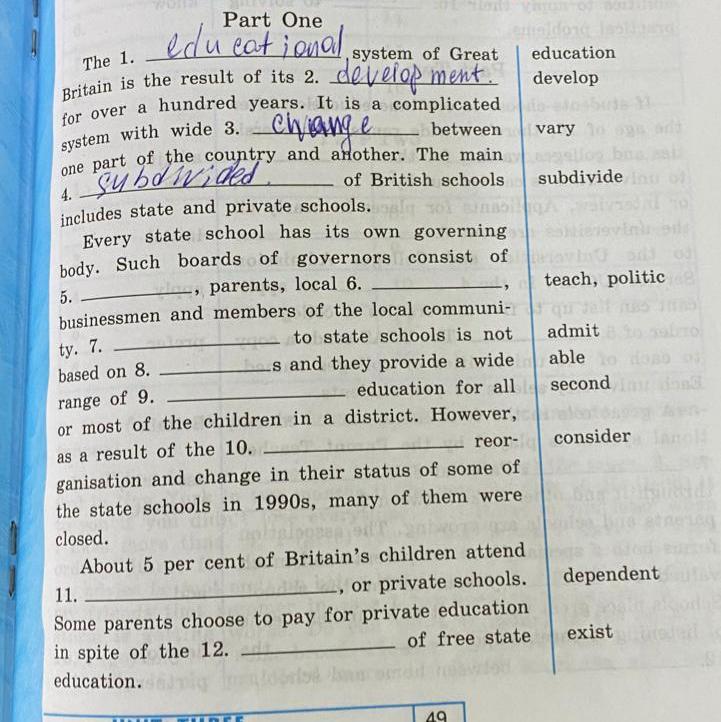 Part One
The 1. educational system of Great education
Britain is the result of its 2. development. develop
for over a hundred years. It is a complicated
system with wide 3. change between vary
one part of the country and another. The main
4. subdivided. of British schools subdivide
includes state and private schools.
Every state school has its own governing
body. Such boards of governors consist of
5. ____, parents, local 6. ____, teach, politic
businessmen and members of the local communi-
ty. 7. ____ to state schools is not admit
based on 8. ____s and they provide a wide able
range of 9. ____ education for all second
or most of the children in a district. However,
as a result of the 10. ____ reor- consider
ganisation and change in their status of some of
the state schools in 1990s, many of them were
closed.
About 5 per cent of Britain's children attend
11. ____, or private schools. dependent
Some parents choose to pay for private education
in spite of the 12. ____ of free state exist
education.
49